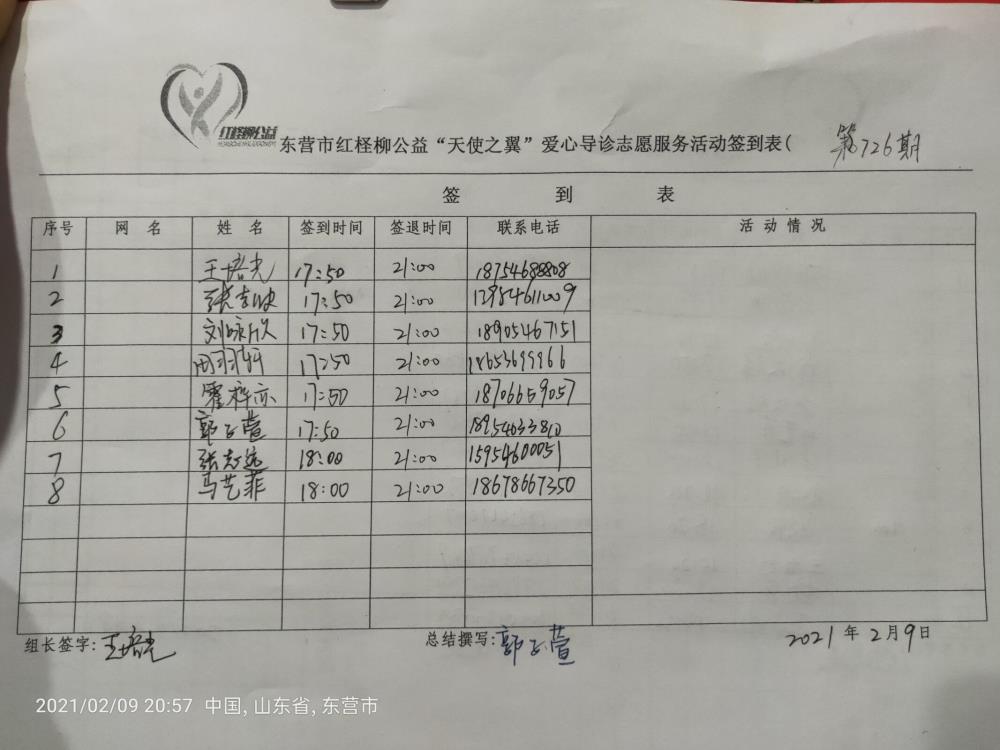 红柽柳公益
东营市红柽柳公益“天使之翼”爱心导诊志愿服务活动签到表( 第726期
签 到 表
序号 网 名 姓 名 签到时间 签退时间 联系电话 活动情况
1 王培光 17:50 21:00 18754688808
2 17:50 21:00 12954611009
3 刘咏欣 17:50 21:00 18905467151
4 田羽轩 17:50 21:00 18653699966
5 霍梓亦 17:50 21:00 18706659057
6 郭子萱 17:50 21:00 18954633810
7 张志远 18:00 21:00 15954600051
8 马艺菲 18:00 21:00 18678667350
组长签字: 王培光 总结撰写: 郭子萱 2021年2月9日
2021/02/09 20:57 中国, 山东省, 东营市